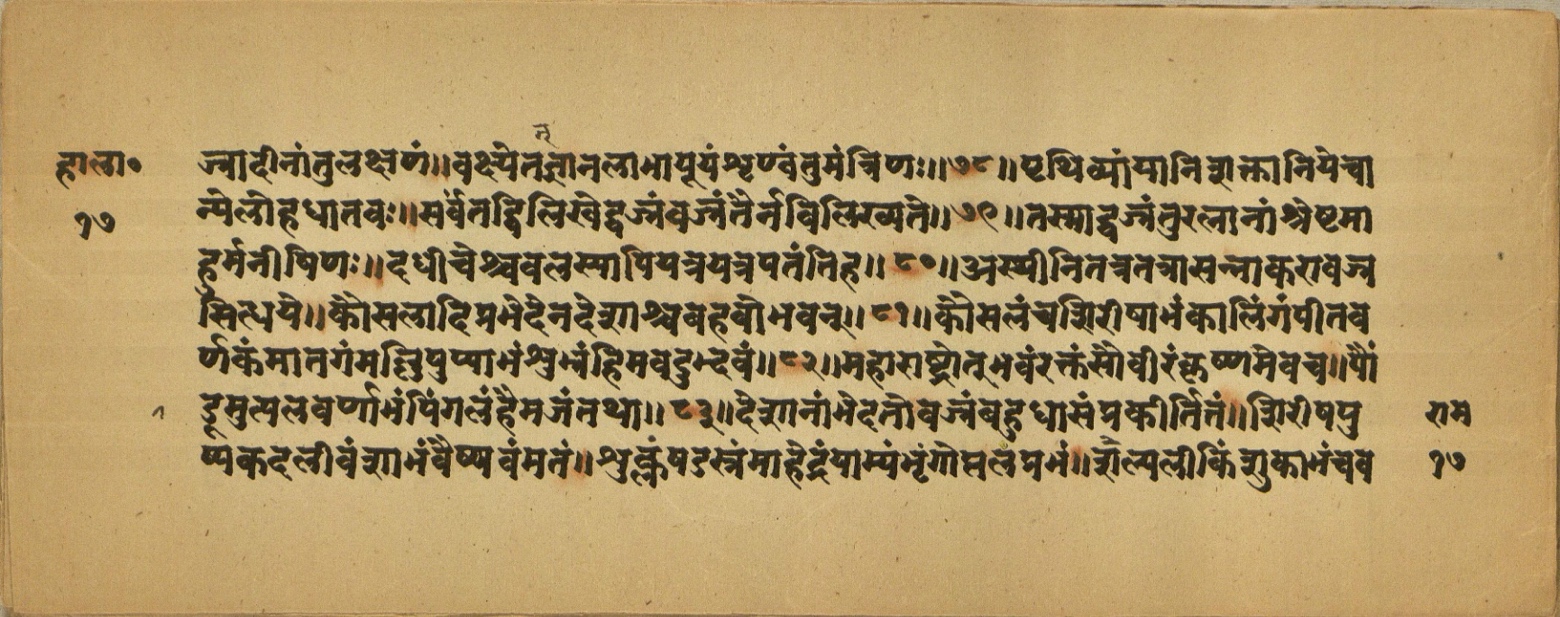 हाला० ज्रादीनांतुलक्षणं॥वक्ष्येतज्ञानलाभायूयंशृण्वंतुमंत्रिणः॥७८॥पृथिव्यांयानिरत्नानियेचा
१७ न्येलोहधातवः॥सर्वतद्विलिखेद्वज्रंवज्रंतैर्नविलिख्यते॥७९॥तस्माद्वज्रंतुरत्नानांश्रेष्टमा
हुर्मनीषिणः॥दधीचेश्चवलस्यापियत्रयत्रपतंतिह॥८०॥अस्थीनितत्रतत्रासन्नाकरावज्र
सित्धये॥कौसलादिप्रभेदेनदेशाश्चबहवोभवन्॥८१॥कौसलंचशिरीषाभंकालिंगंपीतव
र्णकंमातगंमल्लिपुष्पाभंशुभ्रंहिमवदुद्भवं॥८२॥महाराष्ट्रोत्भवंरक्तंसौवीरंकृष्णमेवच॥पौं
ड्रमुत्पलवर्णाभंपिंगलंहैमजंतथा॥८३॥देशानांभेदतोवज्रंबहुधासंप्रकीर्तितं॥शिरीषपु राम
ष्पकदलीवंशाभंवैष्णवंमतं॥शुक्लंषडस्रंमाहेंद्रंयाम्यंभृंगोत्पलप्रभं॥शाल्मलीकिंशुकाभंचव १७